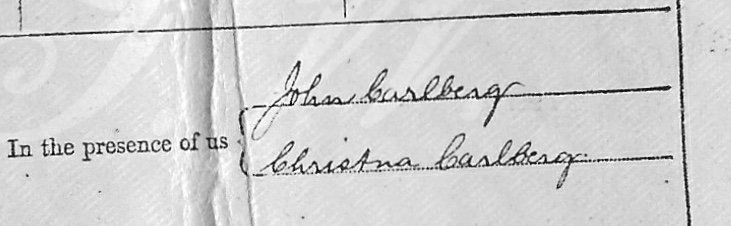 John Carlberg
In the presence of us
Christna Carlberg